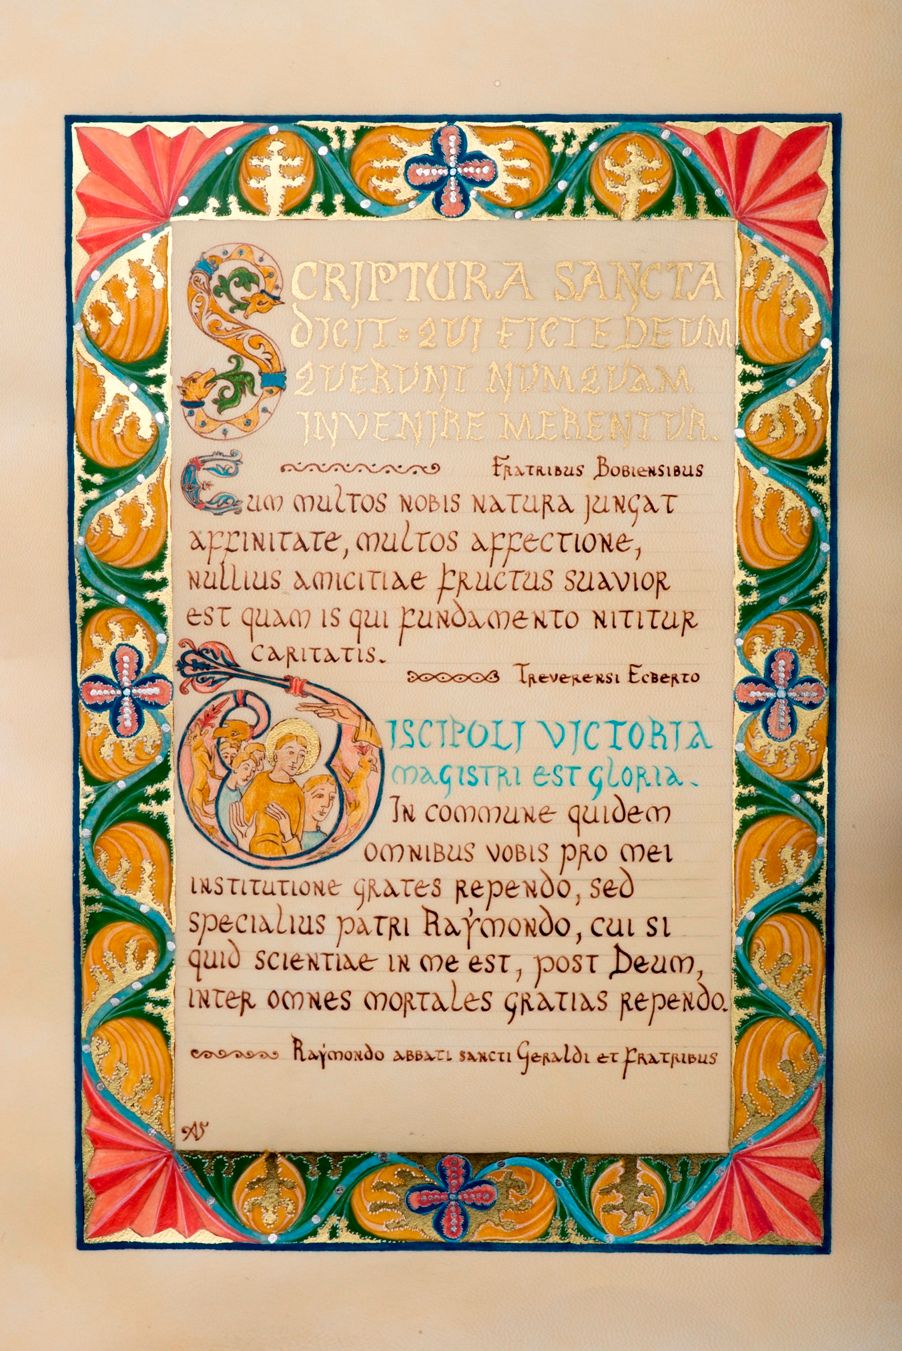 SCRIPTURA SANCTA
DICIT: QUI FICTE DEUM
QUERUNT NUMQUAM
INVENIRE MERENTUR.
Fratribus Bobiensibus
Cum multos nobis natura jungat
affinitate, multos affectione,
nullius amicitiae fructus suavior
est quam is qui fundamento nititur
caritatis.
Treverensi Ecberto
DISCIPOLI VICTORIA
magistri est gloria.
In commune quidem
omnibus vobis pro mei
institutione grates rependo, sed
specialius patri Raymondo, cui si
quid scientiae in me est, post Deum,
inter omnes mortales gratias rependo.
Raymondo abbati sancti Geraldi et fratribus